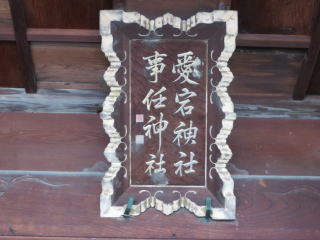 愛宕神社
事任神社